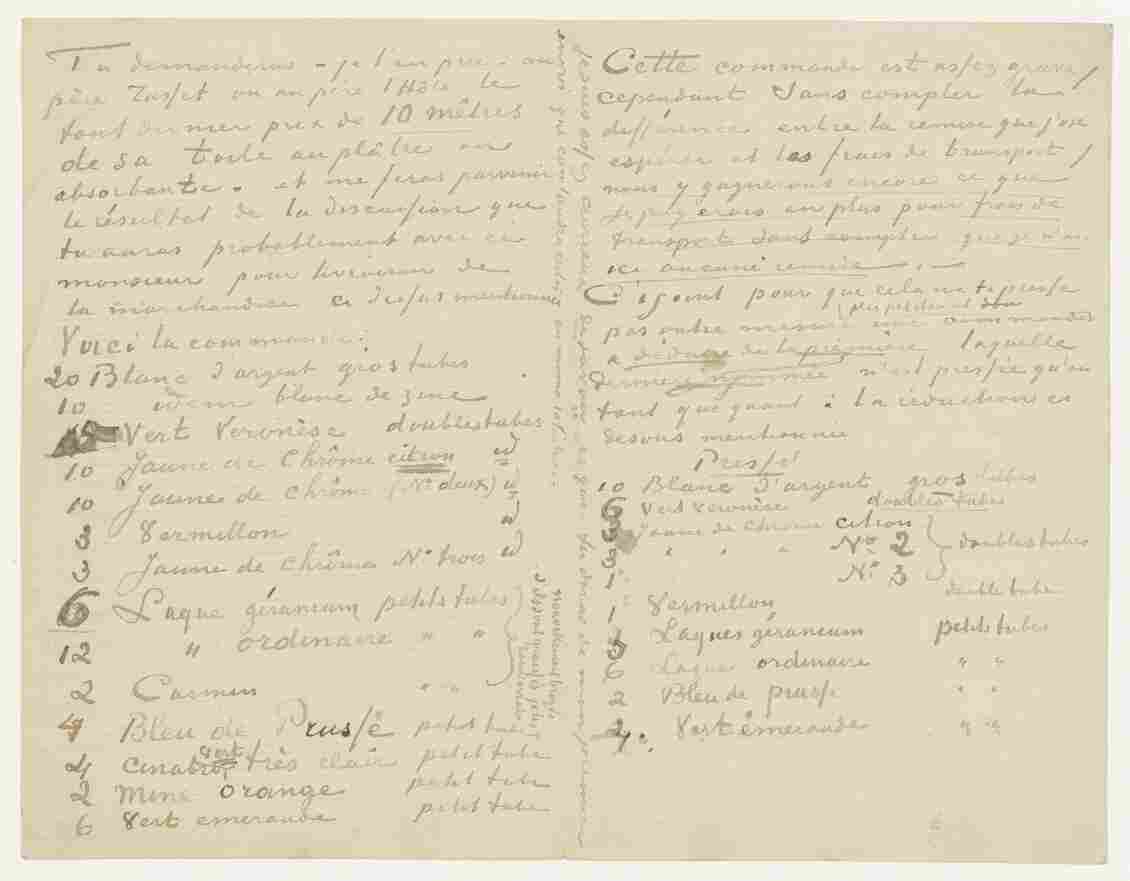 Tu demanderas – je t'en prie – au
père Tasset ou au père l'Hôte le
tout dernier prix de 10 mètres
de sa toile au plâtre ou
absorbante. et me feras parvenir
le résultat de la discussion que
tu auras probablement avec ce
monsieur pour livraison de
la marchandise ci dessus mentionnée
Voici la commande:
20 Blanc d'argent gros tubes
10 idem blanc de zinc
15 Vert Veronèse doubles tubes
10 Jaune de Chrôme citron id
10 Jaune de Chrôme (No deux) id
3 Vermillon id
3 Jaune de Chrôme No trois id
6 Laque géranium petits tubes
12 " ordinaire " "
nouvellement broyés
2 Carmin " "
4 Bleu de Prusse petits tubes
4 Cinabre vert très clair petit tube
2 Mine orange petit tube
6 Vert emeraude petit tube
Cette commande est assez grave
cependant Sans compter la
différence entre la remise que j'ose
espérer et les frais de transport
nous y gagnerons encore ce que
je payerais en plus pour frais de
transports sans compter que je n'ai
ici aucune remise
C'est pour que cela ne te presse
pas outre mesure une commande
à déduire de la première laquelle
dernière n'est pressée qu'en
tant que quant à la réduction ci
desous mentionnée
Pressé
10 Blanc d'argent gros tubes
6 Vert Veronèse doubles tubes
3 Jaune de Chrome citron
3 " " " No 2 doubles tubes
1 " No 3
1 Vermillon double tube
Laques géranium petits tubes
6 Laque ordinaire " "
2 Bleu de prusse " "
4 Vert émeraude " "